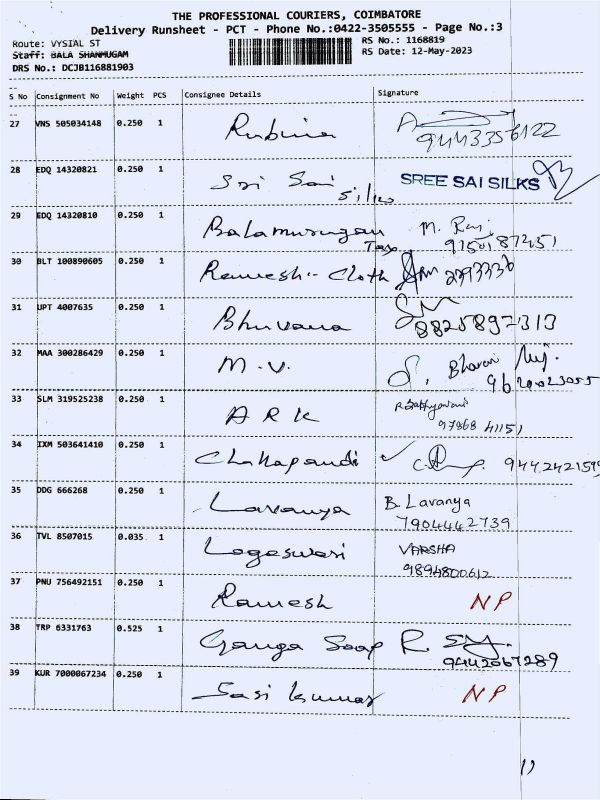 THE PROFESSIONAL COURIERS, COIMBATORE
Delivery Runsheet - PCT - Phone No.:0422-3505555 - Page No.:3
Route: VYSIAL ST
RS No.: 1168819
Staff: BALA SHANMUGAM
RS Date: 12-May-2023
DRS No.: DCJB116881903
S No Consignment No Weight PCS Consignee Details Signature
27 VNS 505034148 0.250 1 Rubina 9443356122
28 EDQ 14320821 0.250 1 Sri Sai Silks SREE SAI SILKS
29 EDQ 14320810 0.250 1 Balamurugan Tex M. Raj
30 BLT 100890605 0.250 1 Ramesh Cloth 2393336
31 UPT 4007635 0.250 1 Bhuvana
32 MAA 300286429 0.250 1 M.V.
33 SLM 319525238 0.250 1 ARK 97868 41151
34 IXM 503641410 0.250 1 9442421599
35 DDG 666268 0.250 1 Lavanya B. Lavanya
7904442739
36 TVL 8507015 0.035 1 Logeswari VARSHA
9894800612
37 PNU 756492151 0.250 1 Ramesh NP
38 TRP 6331763 0.525 1 Ganga Soap
9442067289
39 KUR 7000067234 0.250 1 Sasi kumar NP